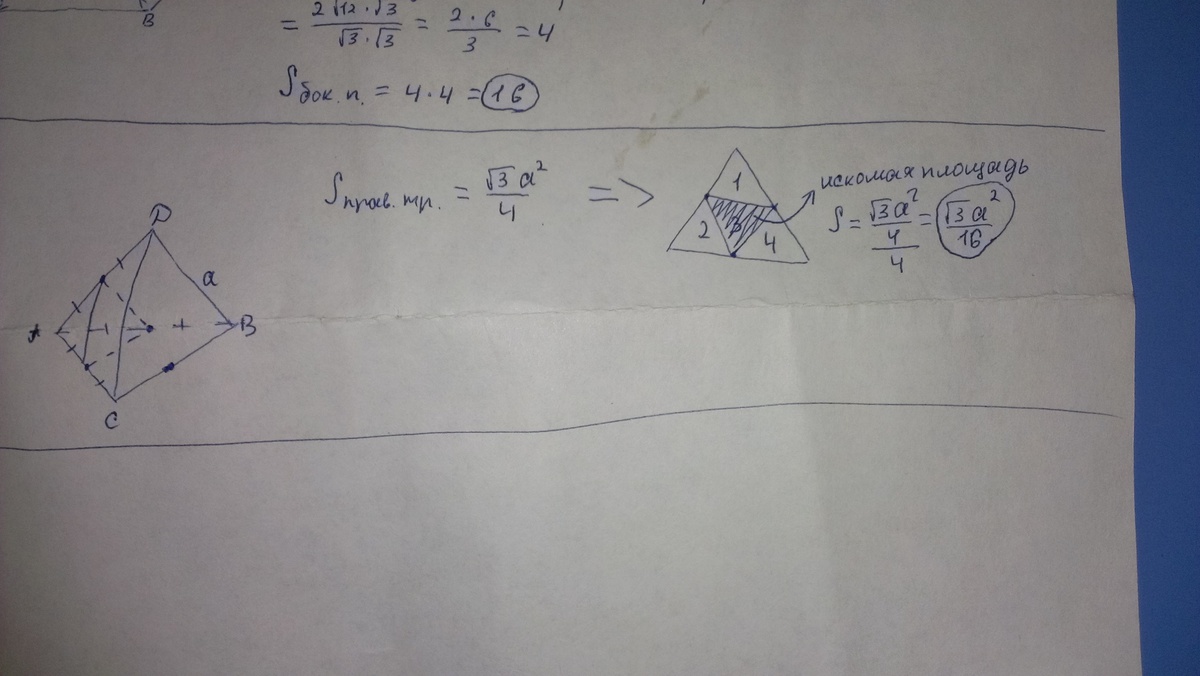 B
= 2√12·√3 / √3·√3 = 2·6 / 3 = 4
Sбок. п. = 4·4 = 16
Sправ. тр. = √3a² / 4 =>
1
2
3
4
искомая площадь
S = √3a² / 4 / 4 = √3a² / 16
D
a
A
B
C